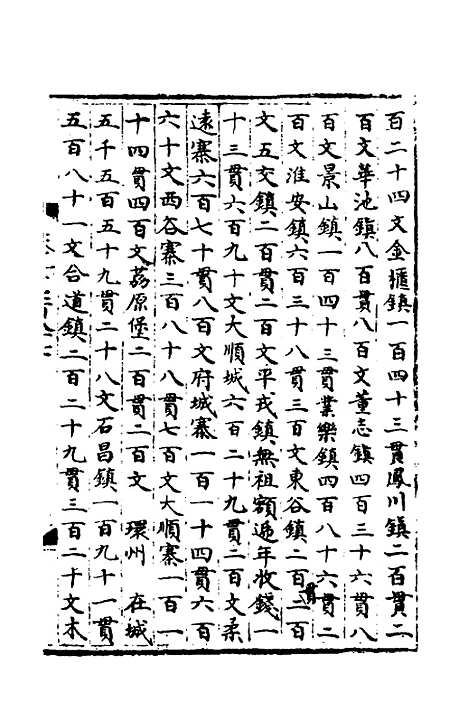 百二十四文金櫃鎮一百四十三貫鳳川鎮二百貫二
百文華池鎮八百貫八百文董志鎮四百三十六貫八
百文景山鎮一百四十三貫業樂鎮四百八十六貫二
百文淮安鎮六百三十八貫三百文東谷鎮二百二貫百
文五交鎮二百貫二百文平戎鎮無祖額遞年收錢一
十三貫六百九十文大順城六百二十九貫二百文柔
遠寨六百七十貫八百文府城寨一百一十四貫六百
六十文西谷寨三百八十八貫七百文大順寨一百一
十四貫四百文荔原堡二百貫二百文 環州 在城
五千五百五十九貫二十八文石昌鎮一百九十一貫
五百八十一文合道鎮二百二十九貫三百二十文木